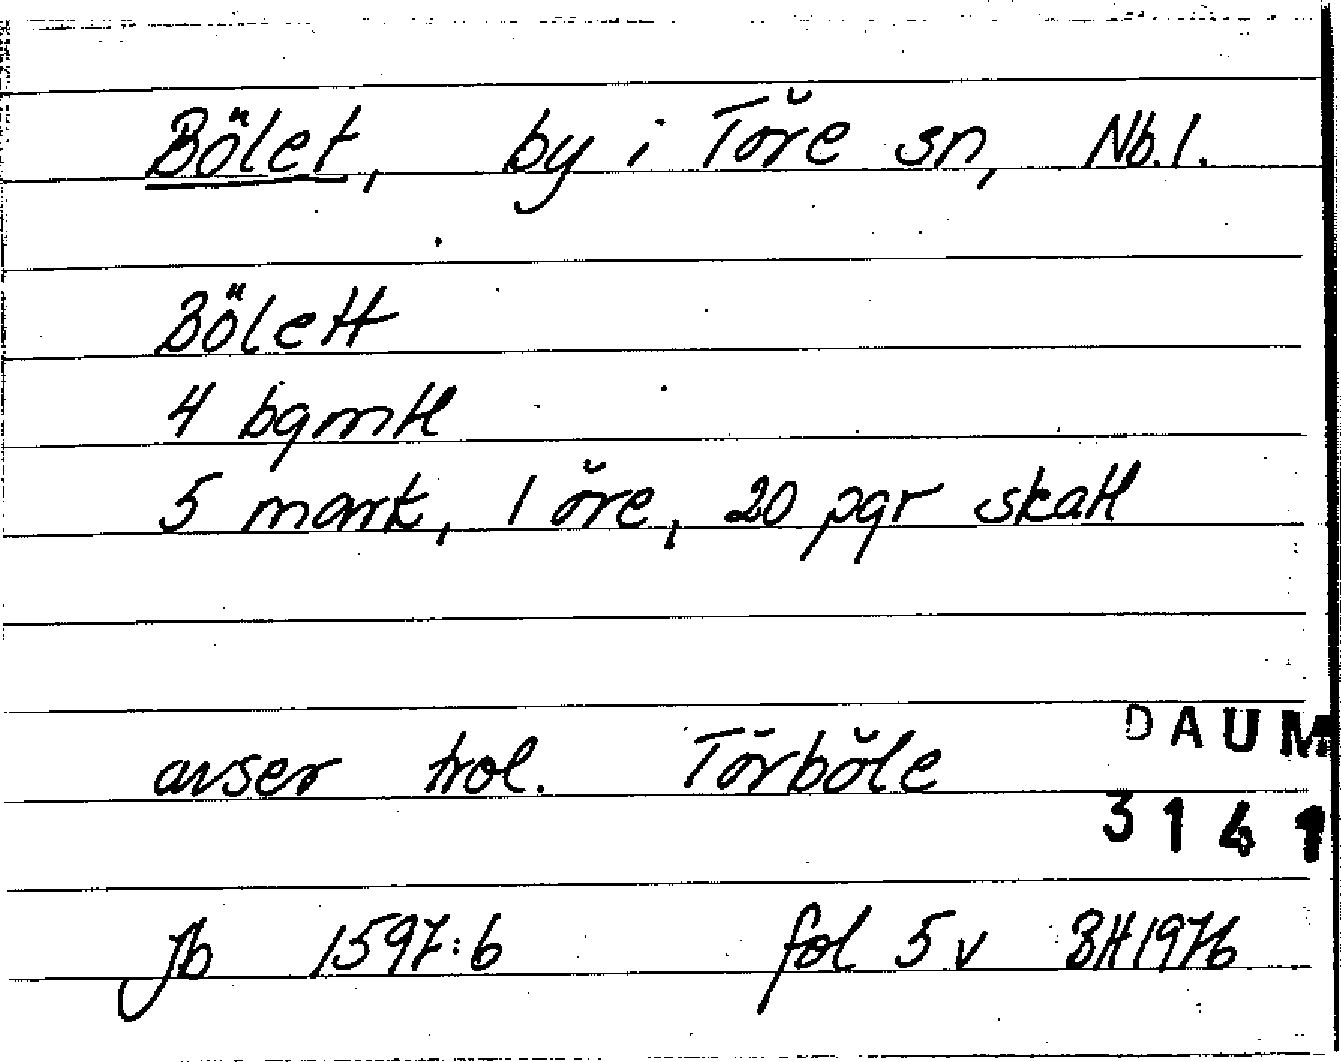 Bölet, by i Töre sn, Nb.l.
Bölett
4 bgmtl
5 mark, 1 öre, 20 pgr skatt
avser trol. Törböle
DAUM
3141
Jb 1597:6 fol 5v BH 1976